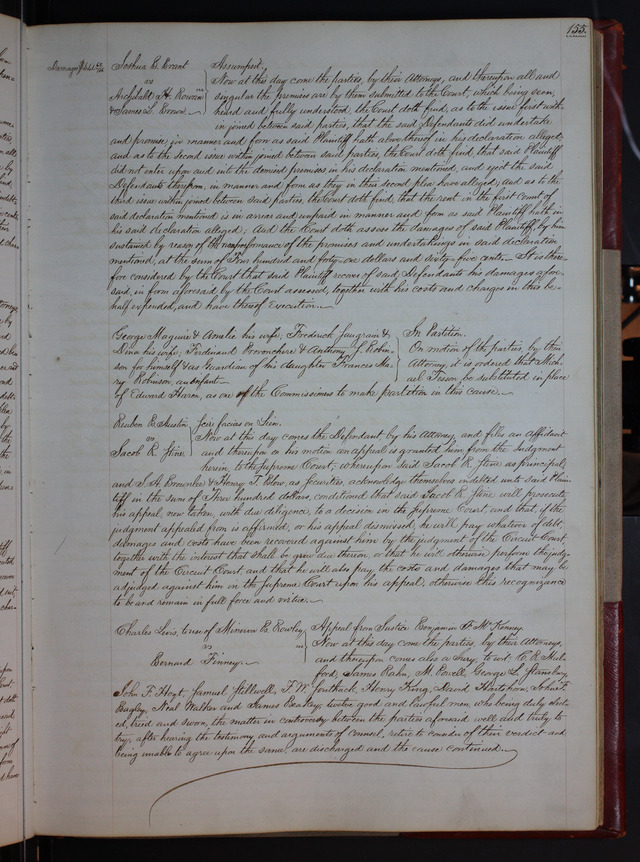 155.
Joshua B. Brant
vs
Archibald
& James L.
Assumpsit.
Now at this day come the parties, by their Attorneys, and thereupon all and
singular the premises are by them submitted to the Court, which being seen,
heard and fully understood, the Court doth find, as to the issue first with
in joined between said parties, that the said Defendants did undertake
and promise, in manner and form as said Plaintiff hath above thereof in his declaration alleged;
and as to the second issue within joined between said parties, the Court doth find, that said Plaintiff
did not enter upon and into the demised premises in his declaration mentioned, and eject the said
Defendants therefrom, in manner and form as they in their second plea have alleged; and as to the
third issue within joined between said parties, the Court doth find, that the rent in the first Count of
said declaration mentioned is in arrear and unpaid in manner and form as said Plaintiff hath in
his said declaration alleged; And the Court doth assess the damages of said Plaintiff, by him
sustained by reason of the nonperformance of the promises and undertakings in said declaration
mentioned, at the sum of Four hundred and forty-one dollars and sixty-five cents. It is there-
for considered by the Court that said Plaintiff recover of said Defendants his damages afore-
said, in form aforesaid by the Court assessed, together with his costs and charges in this be-
half expended, and have thereof Execution.
George Maguire & Amelie his wife; Frederick Saugrain &
his wife; Ferdinand & Anthony J. Robin-
son for himself & as Guardian of his daughter Frances Ma-
ry Robinson, an infant.
In Partition.
On motion of the parties, by their
Attorney, it is ordered that Mich-
ael Tesson be substituted in place
of Edward Haren, as one of the Commissioners to make partition in this cause.
Reuben B. Austin
vs
Jacob R. Stine
Scire facias on Lien.
Now at this day comes the Defendant, by his Attorney, and files an Affidavit
and thereupon on his motion an appeal is granted him from the Judgment
herein to the Supreme Court; whereupon said Jacob R. Stine as principal,
and S. H. Brownlee & Henry T. Blow, as Securities, acknowledge themselves indebted unto said Plain-
tiff in the sum of hundred dollars, conditioned that said Jacob R. Stine will prosecute
his appeal, now taken, with due diligence, to a decision in the Supreme Court, and that, if the
judgment appealed from is affirmed, or his appeal dismissed, he will pay whatever of debt,
damages and costs have been recovered against him by the judgment of the Circuit Court
together with the interest that shall be grow due thereon, or that he will otherwise perform the judg-
ment of the Circuit Court, and that he will also pay the costs and damages that may be
adjudged against him in the Supreme Court upon his appeal; otherwise this recognizance
to be and remain in full force and virtue.
Charles Levis, to use of Minerva B. Rowley
vs
Bernard Finney.
Appeal from Justice Benjamin F. McKenney.
Now at this day come the parties, by their Attorneys,
and thereupon comes also a Jury, to wit, C. R.
ford, James Cahn, M. Powell, George L. Stansbury
John F. Hoyt, Samuel Stillwell, F. W. Southack, Henry King, David Hartshorn, John F.
Bagley, Neal Walker and James Beakey, twelve good and lawful men, who being duly elect-
ed, tried and sworn, the matter in controversy between the parties aforesaid well and truly to
try, after hearing the testimony and arguments of counsel, retire to consider of their verdict and
being unable to agree upon the same, are discharged and the cause continued.